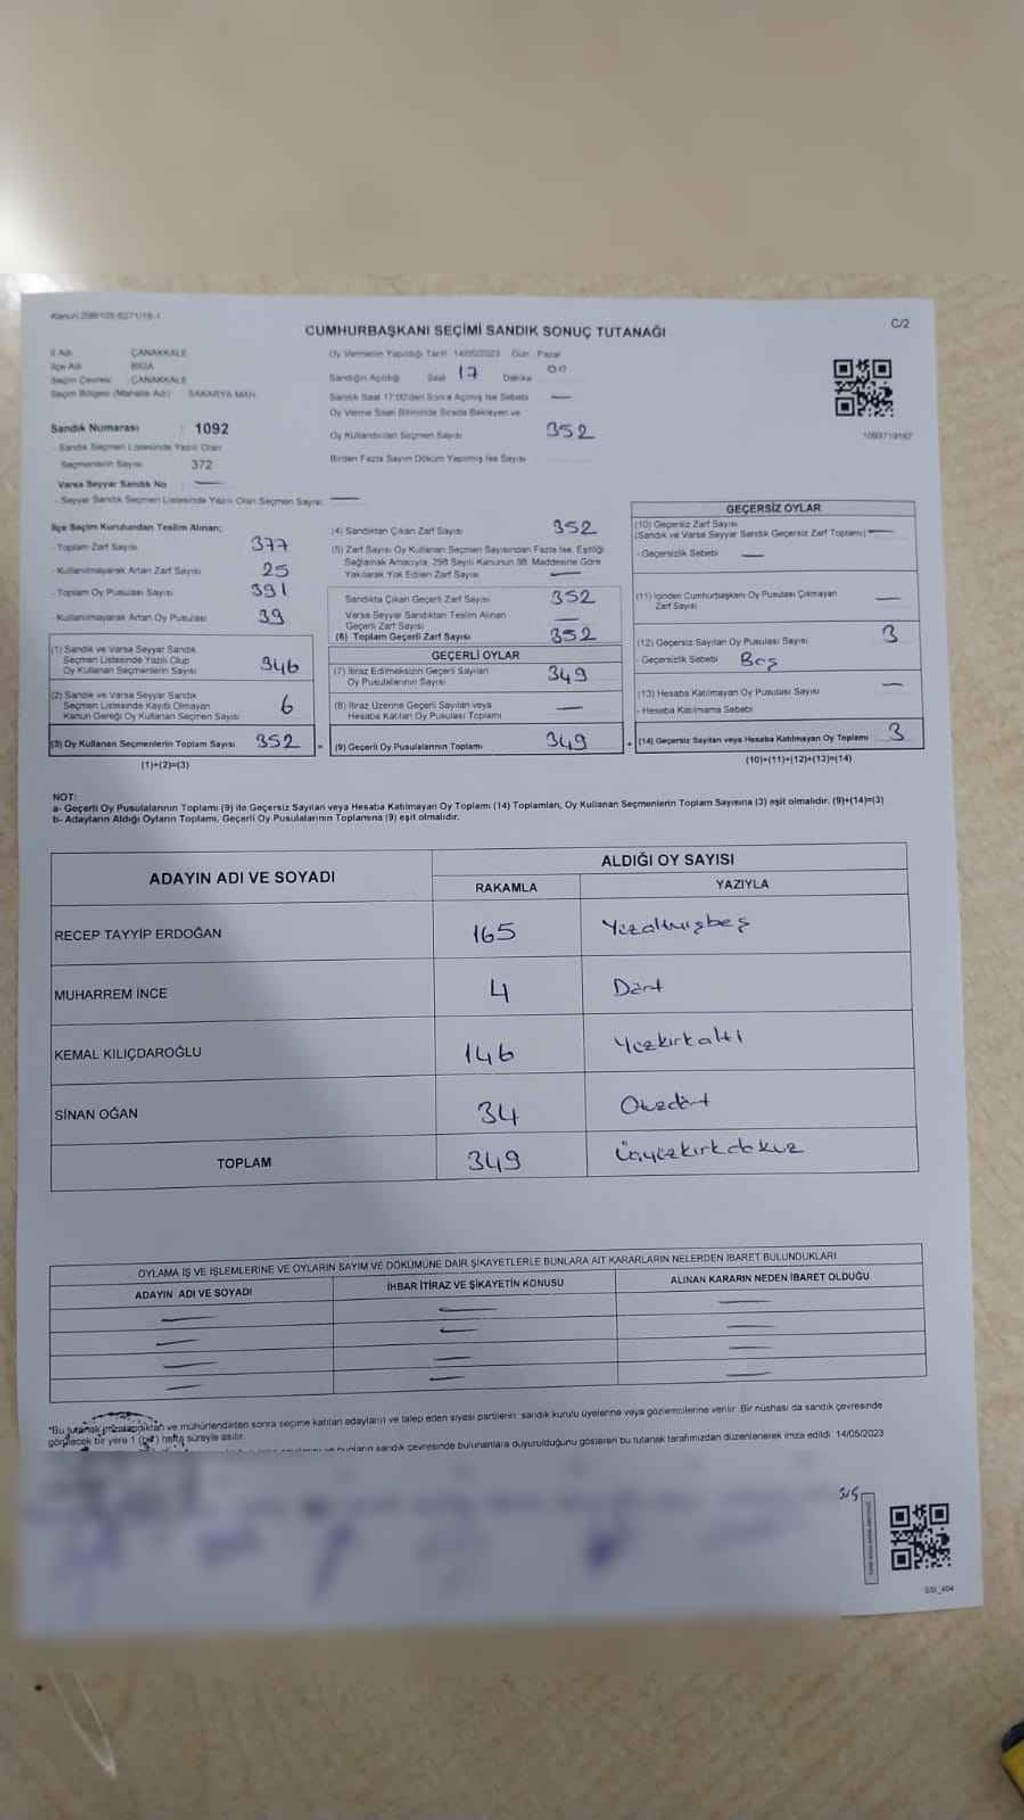 CUMHURBAŞKANI SEÇİMİ SANDIK SONUÇ TUTANAĞI
C/2
İl Adı ÇANAKKALE
İlçe Adı BİGA
Seçim Çevresi ÇANAKKALE
Seçim Bölgesi (Mahalle Adı) SAKARYA MAH.
Oy Vermenin Yapıldığı Tarih 14/05/2023 Gün Pazar
Sandığın Açıldığı Saat 17 Dakika 00
Sandık Saat 17:00'den Sonra Açılmış İse Sebebi —
Oy Verme Saati Bitiminde Sırada Bekleyen ve
Oy Kullandırılan Seçmen Sayısı 352
Birden Fazla Sayım Döküm Yapılmış İse Sayısı
Sandık Numarası 1092
- Sandık Seçmen Listesinde Yazılı Olan
Seçmenlerin Sayısı 372
Varsa Seyyar Sandık No —
- Seyyar Sandık Seçmen Listesinde Yazılı Olan Seçmen Sayısı —
İlçe Seçim Kurulundan Teslim Alınan;
- Toplam Zarf Sayısı 377
- Kullanılmayarak Artan Zarf Sayısı 25
- Toplam Oy Pusulası Sayısı 391
- Kullanılmayarak Artan Oy Pusulası 39
(1) Sandık ve Varsa Seyyar Sandık
Seçmen Listesinde Yazılı Olup
Oy Kullanan Seçmenlerin Sayısı 346
(2) Sandık ve Varsa Seyyar Sandık
Seçmen Listesinde Kayıtlı Olmayan
Kanun Gereği Oy Kullanan Seçmen Sayısı 6
(3) Oy Kullanan Seçmenlerin Toplam Sayısı 352
(1)+(2)=(3)
(4) Sandıktan Çıkan Zarf Sayısı 352
(5) Zarf Sayısı Oy Kullanan Seçmen Sayısından Fazla İse, Eşitliği
Sağlamak Amacıyla, 298 Sayılı Kanunun 98. Maddesine Göre
Yakılarak Yok Edilen Zarf Sayısı —
Sandıkta Çıkan Geçerli Zarf Sayısı 352
Varsa Seyyar Sandıktan Teslim Alınan
Geçerli Zarf Sayısı —
(6) Toplam Geçerli Zarf Sayısı 352
GEÇERLİ OYLAR
(7) İtiraz Edilmeksizin Geçerli Sayılan
Oy Pusulalarının Sayısı 349
(8) İtiraz Üzerine Geçerli Sayılan veya
Hesaba Katılan Oy Pusulası Toplamı —
= (9) Geçerli Oy Pusulalarının Toplamı 349
GEÇERSİZ OYLAR
(10) Geçersiz Zarf Sayısı
(Sandık ve Varsa Seyyar Sandık Geçersiz Zarf Toplamı) —
- Geçersizlik Sebebi —
(11) İçinden Cumhurbaşkanı Oy Pusulası Çıkmayan
Zarf Sayısı —
(12) Geçersiz Sayılan Oy Pusulası Sayısı 3
- Geçersizlik Sebebi Boş
(13) Hesaba Katılmayan Oy Pusulası Sayısı —
- Hesaba Katılmama Sebebi
+ (14) Geçersiz Sayılan veya Hesaba Katılmayan Oy Toplamı 3
(10)+(11)+(12)+(13)=(14)
NOT:
a- Geçerli Oy Pusulalarının Toplamı (9) ile Geçersiz Sayılan veya Hesaba Katılmayan Oy Toplamı (14) Toplamları, Oy Kullanan Seçmenlerin Toplam Sayısına (3) eşit olmalıdır. (9)+(14)=(3)
b- Adayların Aldığı Oyların Toplamı, Geçerli Oy Pusulalarının Toplamına (9) eşit olmalıdır.
ADAYIN ADI VE SOYADI ALDIĞI OY SAYISI
RAKAMLA YAZIYLA
RECEP TAYYİP ERDOĞAN 165 Yüzaltmışbeş
MUHARREM İNCE 4 Dört
KEMAL KILIÇDAROĞLU 146 Yüzkırkaltı
SİNAN OĞAN 34 Otuzdört
TOPLAM 349 Üçyüzkırkdokuz
OYLAMA İŞ VE İŞLEMLERİNE VE OYLARIN SAYIM VE DÖKÜMÜNE DAİR ŞİKAYETLERLE BUNLARA AİT KARARLARIN NELERDEN İBARET BULUNDUKLARI
ADAYIN ADI VE SOYADI İHBAR İTİRAZ VE ŞİKAYETİN KONUSU ALINAN KARARIN NEDEN İBARET OLDUĞU
— — —
— — —
— — —
— — —
*Bu tutanak imzalandıktan ve mühürlendikten sonra seçime katılan adayların ve talep eden siyasi partilerin sandık kurulu üyelerine veya gözlemcilerine verilir. Bir nüshası da sandık çevresinde
görülecek bir yere 1 (bir) hafta süreyle asılır.
bunların sandık çevresinde bulunanlara duyurulduğunu gösteren bu tutanak tarafımızdan düzenlenerek imza edildi. 14/05/2023